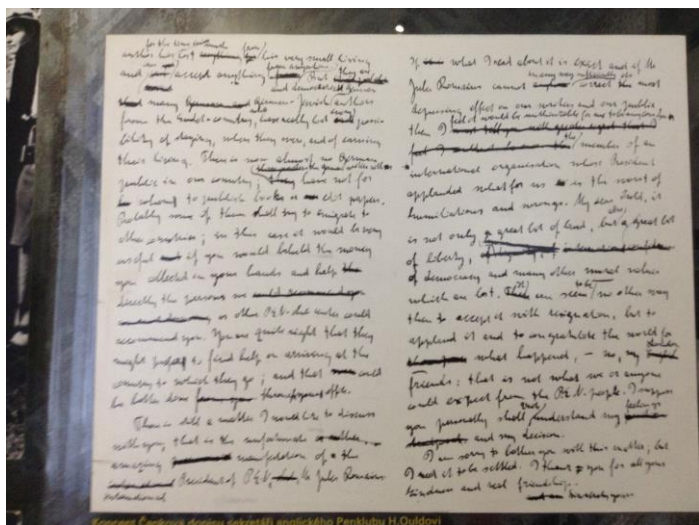 for the time
author has lost his very small living
and accept anything from anywhere. But they are
and democratical German
many German-Jewish authors
from the Sudet-country, who really lost every possi-
bility of staying, where they were, and of earning
their living. There is now almost no German
public in our country; they have not for
whom to publish books or edit papers.
Probably some of them shall try to emigrate to
other countries; in this case it would be very
useful if you would behold the money
you collected in your hands and help
directly the persons we
or other P.E.N. Centre could
recommend you. You are quite right that they
might to find help on arriving at the
country to which they go; and that could
be better done through your office.
There is still a matter I would like to discuss
with you, that is the
amazing manifestation of the
international President of P.E.N., Mr Jules Romains
If what I read about it is exact and if
Jules Romains cannot correct the most
depressing effect on our writers and our public
then I feel it would be for me to be any longer
member of an
international organisation whose President
applauded what for us is the worst of
humiliations and wrongs. My dear Ould, it
is not only a great lot of land, but also a great lot
of liberty,
of democracy and many other moral values
which are lost. seen no other way
than to accept it with resignation, but to
applaud it and to congratulate the world for
what happened, – no, my
friends: that is not what we or anyone
could expect from the P.E.N. people. I suppose
you personally shall understand my feelings
and my decision.
I am sorry to bother you with this matter, but
I need it to be settled. I thank you for all your
kindness and real friendship.
Koncept Čapkova dopisu sekretáři anglického Penklubu H.Ouldovi